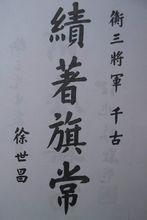 衛三將軍 千古
績著旂常
徐世昌